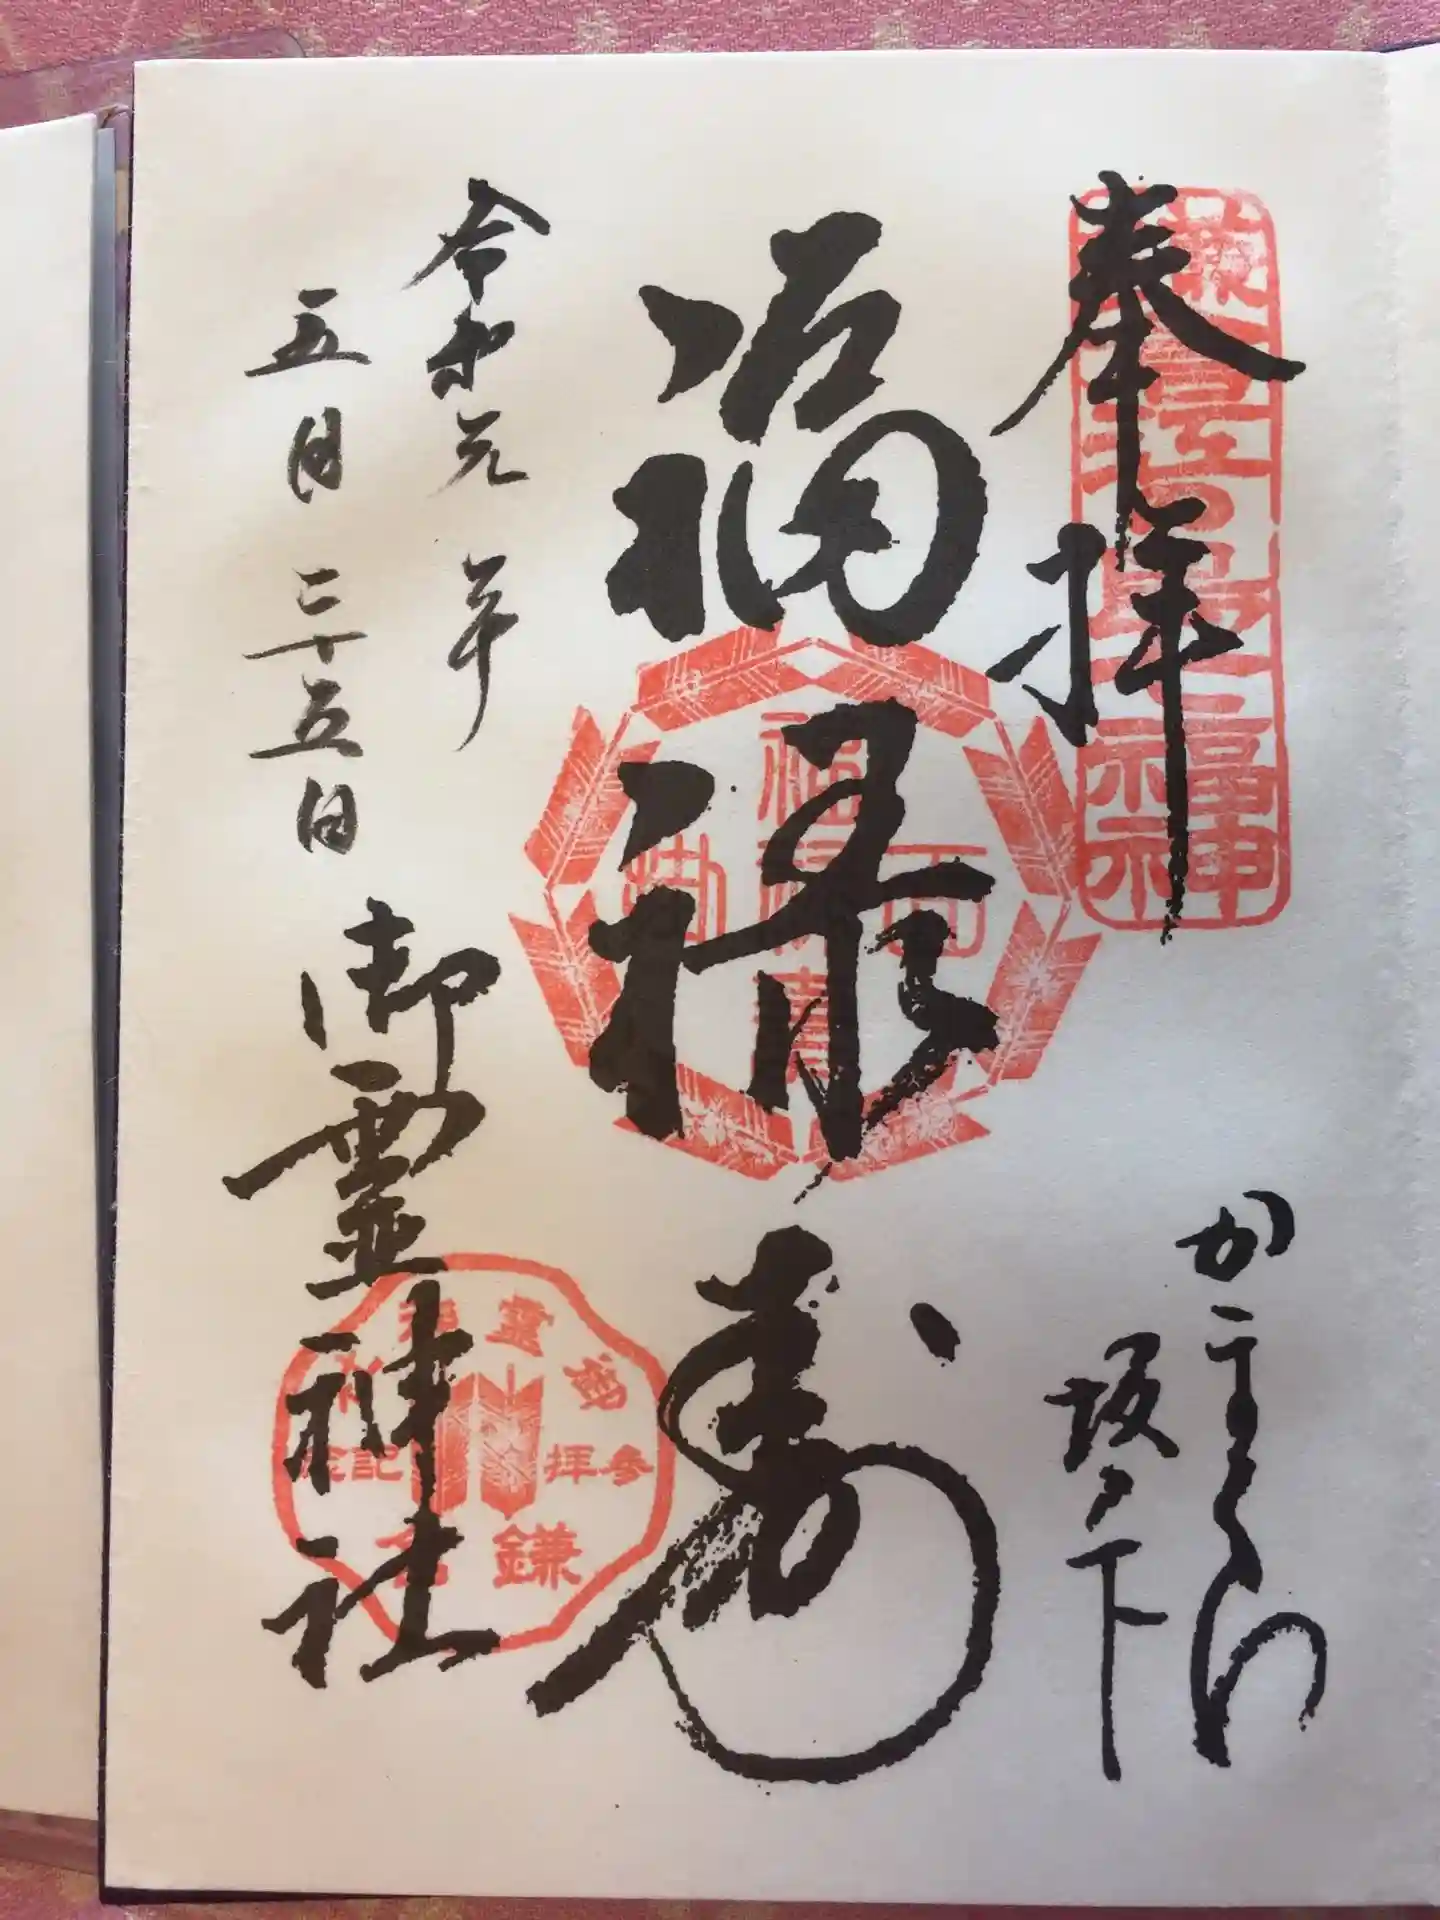 奉拝
かまくら
坂ノ下
福禄寿
令和元年
五月二十五日
御霊神社
福禄寿
面掛
御霊神社
参拝記念
鎌倉